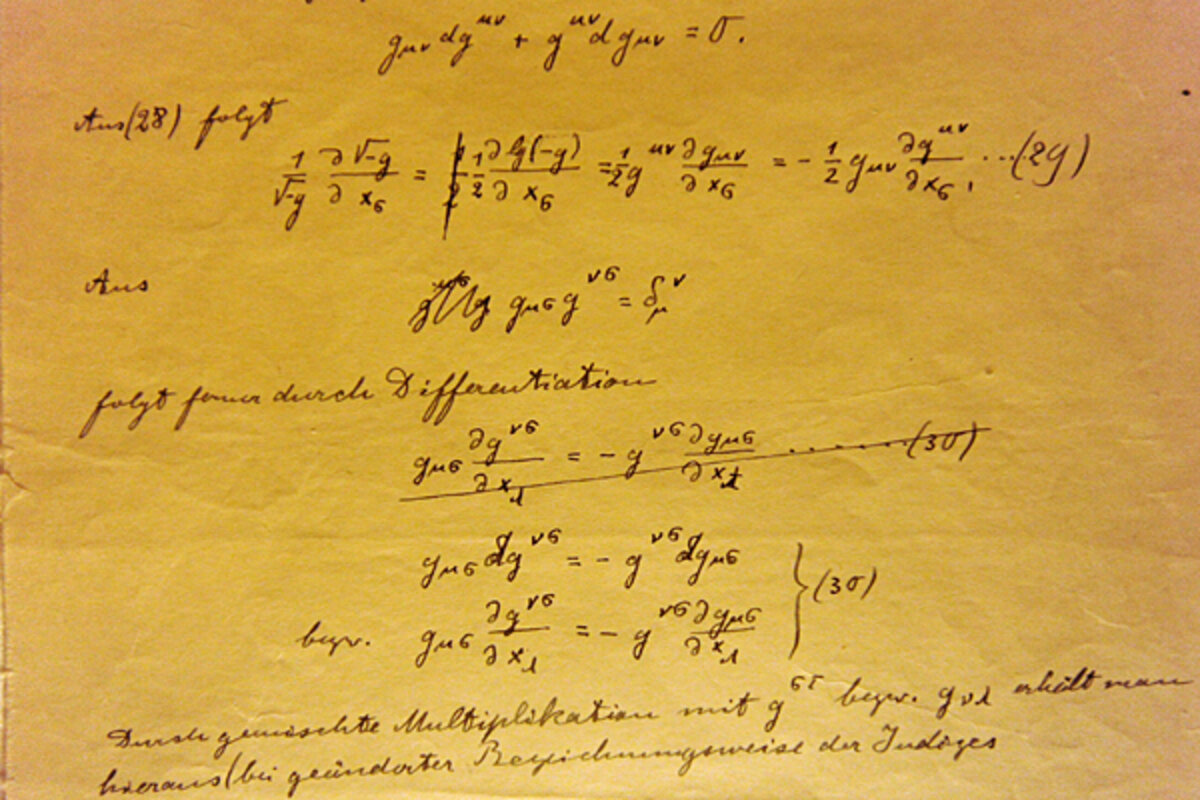 g_{μν} dg^{μν} + g^{μν} dg_{μν} = 0.
Aus (28) folgt
1/√-g ∂√-g/∂x_σ = 1/2 ∂lg(-g)/∂x_σ = 1/2 g^{μν} ∂g_{μν}/∂x_σ = - 1/2 g_{μν} ∂g^{μν}/∂x_σ, ...(29)
Aus g_{μσ} g^{νσ} = δ_μ^ν
folgt ferner durch Differentiation
g_{μσ} ∂g^{νσ}/∂x_λ = - g^{νσ} ∂g_{μσ}/∂x_λ ........(30)
g_{μσ} dg^{νσ} = - g^{νσ} dg_{μσ}
} (30)
bezw. g_{μσ} ∂g^{νσ}/∂x_λ = - g^{νσ} ∂g_{μσ}/∂x_λ
Durch gemischte Multiplikation mit g^{στ} bezw. g_{νλ} erhält man
hieraus (bei geänderter Bezeichnungsweise der Indizes